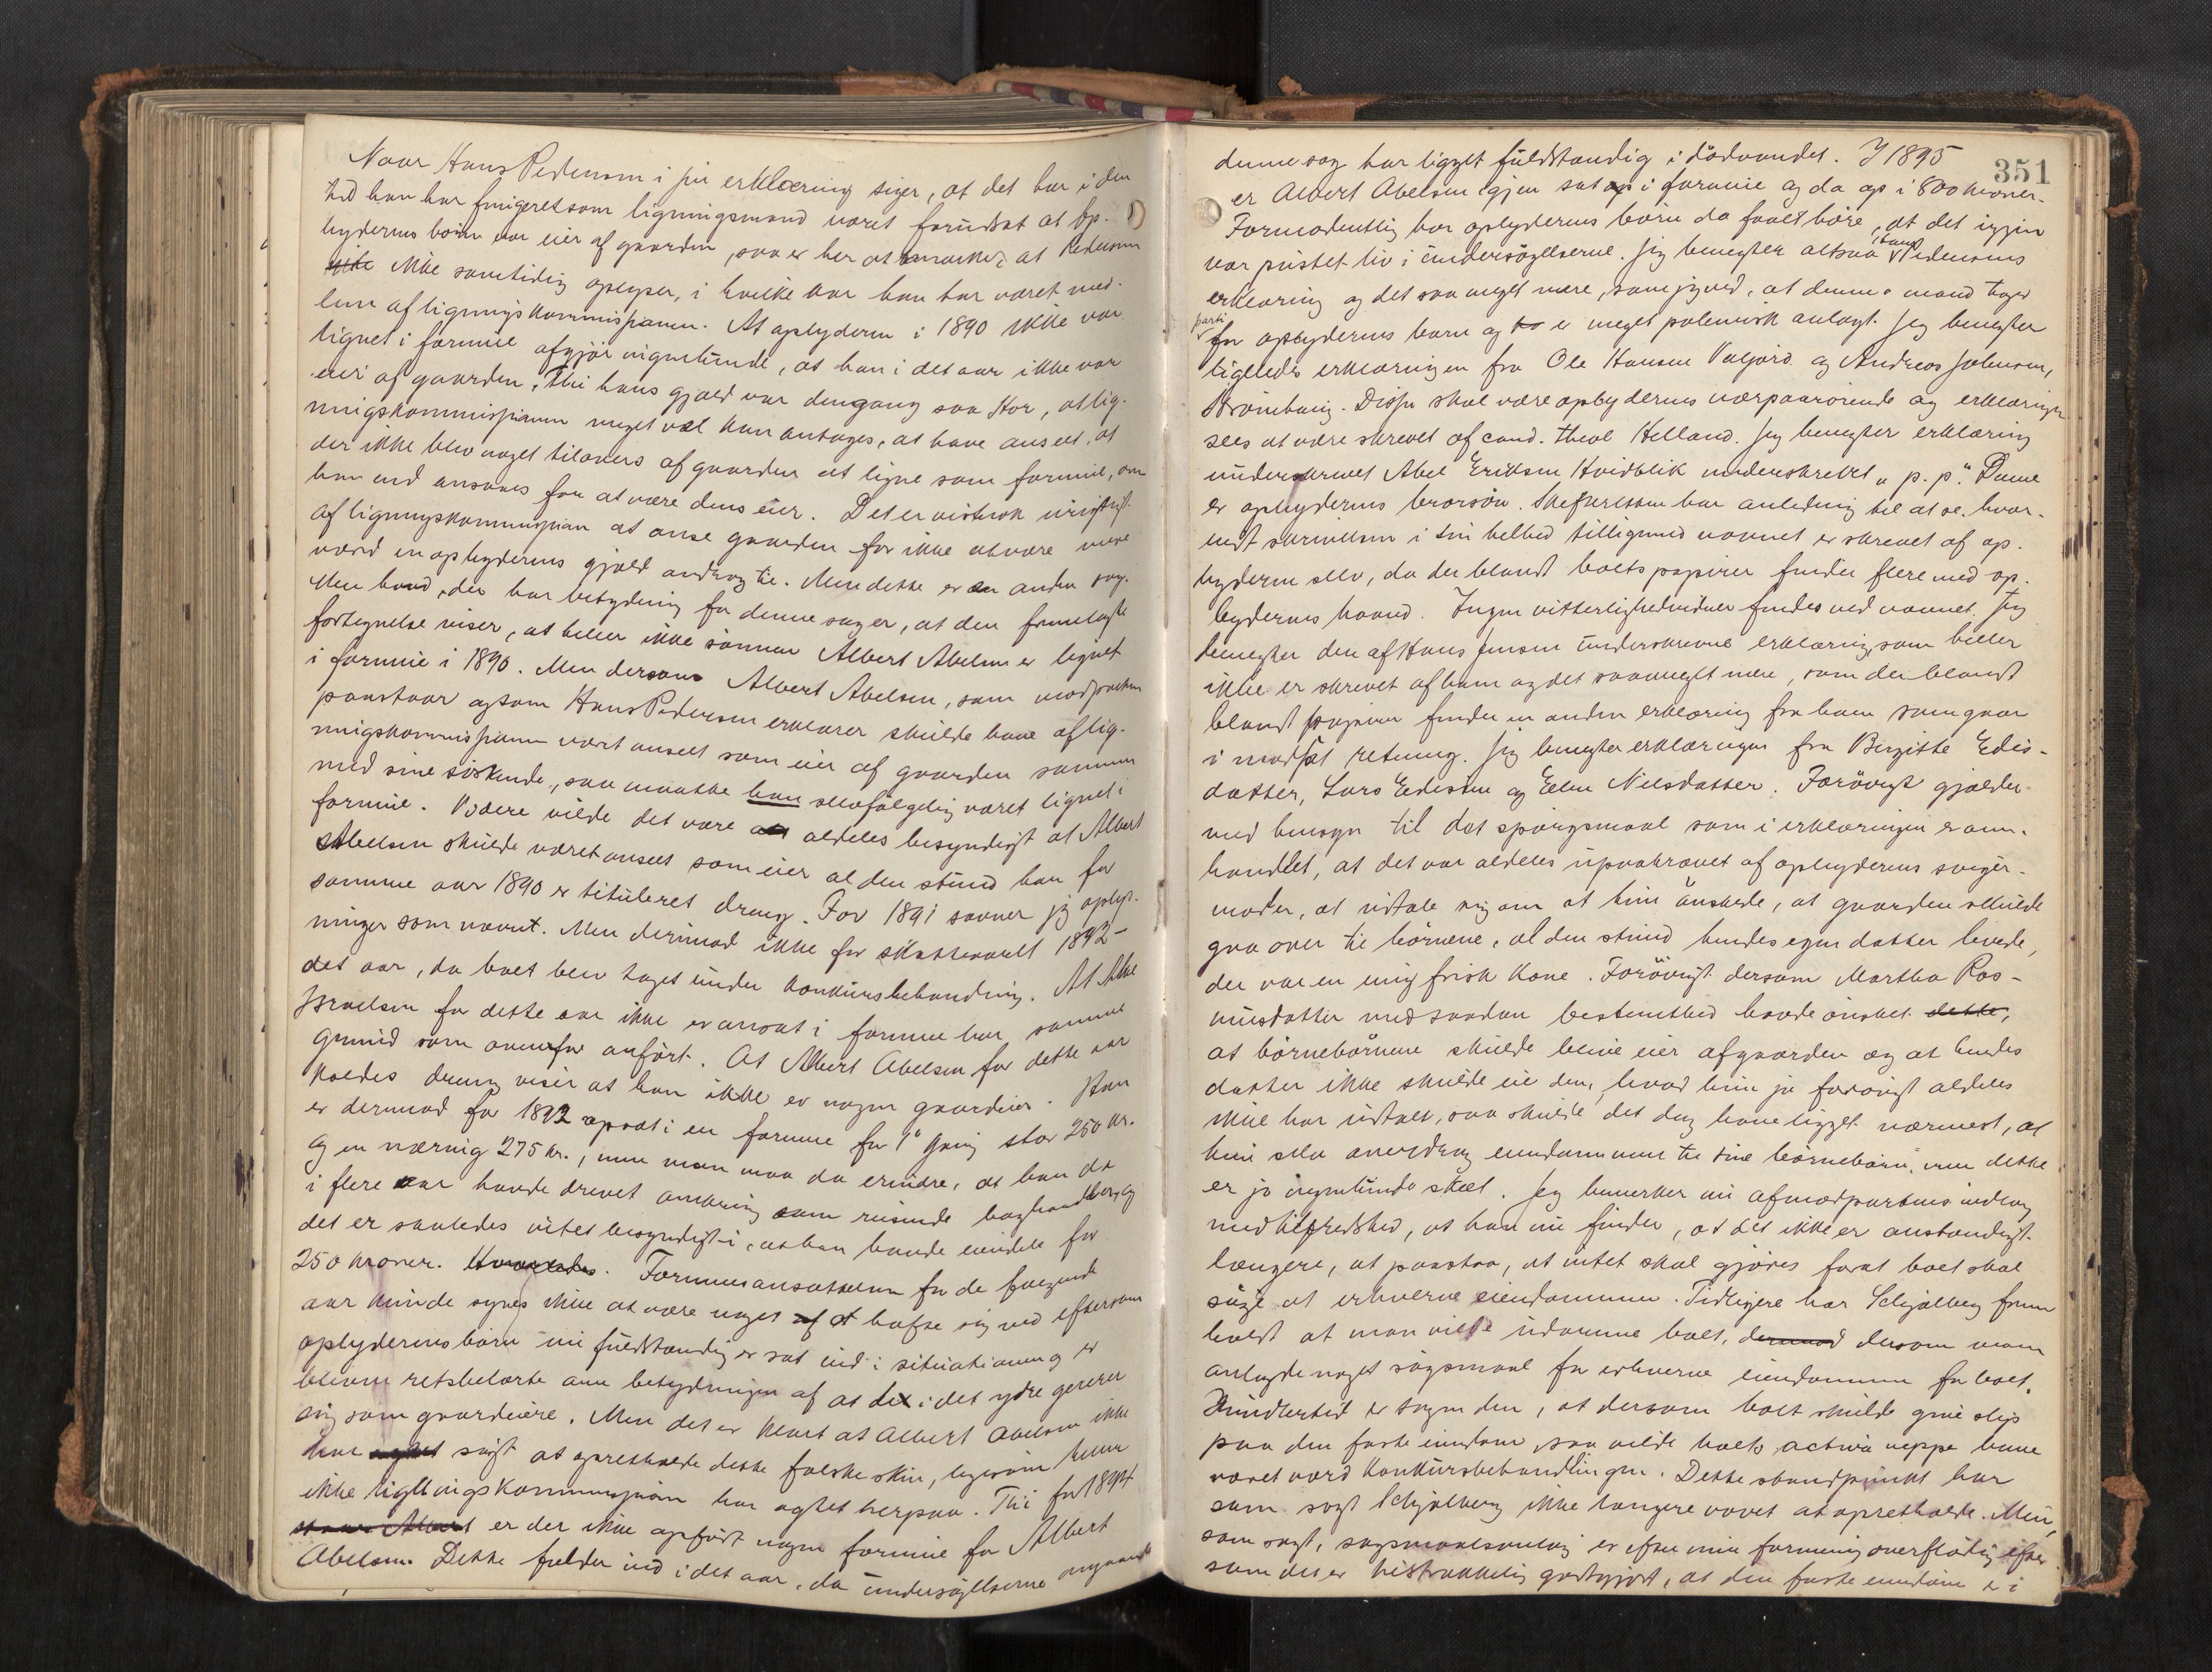 Naar Hans Pedersen i sin erklæring siger, at det har i den
tid han har fungeret som ligningsmand været forudsat at Op-
byderens børn var eier af gaarden, saa er her at bemærke, at Pedersen
ikke samtidig oplyser, i hvilke aar han har været med-
lem af ligningskommissionen. At opbyderen i 1890 ikke var
lignet i formue afgjør ingenlunde, at han i det aar ikke var
eier af gaarden. Thi hans gjæld var dengang saa stor, at lig-
ningskommissionen meget vel kan antages, at have anseet, at
der ikke blev noget tilovers af gaarden at ligne som formue, om
han end ansaaes for at være dens eier. Det er vistnok urigtigt
af ligningskommission at anse gaarden for ikke at være mere
værd en opbyderens gjæld androg til. Men dette er en anden sag.
Men hvad, der har betydning for denne sag er, at den fremlagte
fortegnelse viser, at heller ikke sønnen Albert Abelsen er lignet
i formue i 1890. Men dersom Albert Abelsen, som modparten
paastaar og som Hans Pedersen erklærer skulde have af lig-
ningskommissionen vært anseet som eier af gaarden sammen
med sine søskende, saa maatte han selvfølgelig været lignet i
formue. Videre vilde det være aldeles besynderligt at Albert
Abelsen skulde været anseet som eier al den stund han for
samme aar 1890 er tituleret dreng. For 1891 savner jeg oplys-
ninger som nævnt. Men derimod ikke for skatteaaret 1892 –
det aar, da boet blev taget under konkursbehandling. At Abel
Israelsen for dette aar ikke er ansat i formue har samme
grund som ovenfor anført. At Albert Abelsen for dette aar
kaldes dreng viser at han ikke er nogen gaardeier. Han
er dermod for 1892 opsat i en formue for 1ste Gang stor 250 kr.
og en næring 275 kr., men man maa da erindre, at han da
i flere aar havde drevet omkring som reisende boghandler, og
det er saaledes intet besynderligt i, at han havde eiendele for
250 kroner. Formuesansættelsen for de følgende
aar kunde synes ikke at være noget at hefte sig ved eftersom
opbyderens børn nu fuldstændig er sat ind i situationen og er
bleven retsbelærte om betydningen af at de i det ydre gererer
sig som gaardeiere. Men det er klart at Albert Abelsen ikke
har søgt at opretholde dette falske skin, ligesom heller
ikke ligningskommissionen har agtet herpaa. Thi for 1894
er der ikke opført nogen formue for Albert
Abelsen. Dette falder ind i det aar, da undersøgelserne angaaende
351
denne sag har ligget fuldstændig i dødvandet. I 1895
er Albert Abelsen igjen sat op i formue og da op i 800 kroner.
Formodentlig har opbyderens børn da faaet høre, at det igjen
var pustet liv i undersøgelserne. Jeg benegter altsaa Hans Pedersens
erklæring og det saa meget mere, som jeg ved, at denne mand tager
parti for opbyderens børn og er meget polemisk anlagt. Jeg benegter
ligeledes erklæringen fra Ole Hansen Valjord og Andreas Johnsen,
Strømhaug. Disse skal være opbyderens nærpaarørende og erklæringen
sees at være skrevet af cand. theol Helland. Jeg benegter erklæring
underskrevet Abel Eriksen Hvidblik underskrevet „p. p." Denne
er opbyderens brorsøn. Skifteretten har anledning til at se, hvor-
vidt skrivelsen i sin helhed tilligemed navnet er skrevet af op-
byderen selv, da der blandt boets papirer findes flere med op-
byderens haand. Ingen vitterlighedsvidner findes ved navnet. Jeg
benegter den af Hans Jensen underskrevne erklæring, som heller
ikke er skrevet af ham og det saameget mere, som der blandt
blandt papirer findes en anden erklæring fra ham som gaar
i modsat retning. Jeg benegter erklæringen fra Birgitte Edis-
datter, Lars Edissen og Ellen Nilsdatter. Forøvrigt gjælder
med hensyn til det spørgsmaal som i erklæringen er om-
handlet, at det var aldeles upaakrævet af opbyderens sviger-
moder, at udtale sig om at hun ønskede, at gaarden skulde
gaa over til børnene, al den stund hendes egen datter levede,
der var en ung frisk kone. Forøvrigt dersom Martha Ras-
musdatter med saadan bestemthed havde ønsket
at børnebørnene skulde blive eier af gaarden og at hendes
datter ikke skulde eie den, hvad hun jo forøvrigt aldeles
ikke har udtalt, saa skulde det dog have ligget nærmest, at
hun selv overdrog eiendommen til sine børnebørn, men dette
er jo ingenlunde skeet. Jeg bemerker nu af modpartens indlæg
med tilfredshed, at han nu finder, at det ikke er anstændigt
længere, at paastaa, at intet skal gjøres forat boet skal
søge at erhverve eiendommen. Tidligere har Schjølberg frem
holdt at man vilde udtømme boet, dersom man
anlagde noget søgsmaal for erhverve eiendommen for boet.
Imidlertid er sagen den, at dersom boet skulde give slip
paa den faste eiendom, saa vilde boets activa neppe have
været værd konkursbehandlingen. Dette standpunkt har
som sagt Schjølberg ikke længere vovet at opretholde. Men,
som sagt, søgsmaalsanlæg er efter min formening overflødig efter
som det er tilstrækkelig godtgjort, at den faste eiendom er i